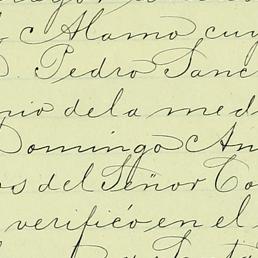 Alamo, cuy
D. Pedro Sanc
nio dela med
Domingo An
os del Señor Co
verificó en el